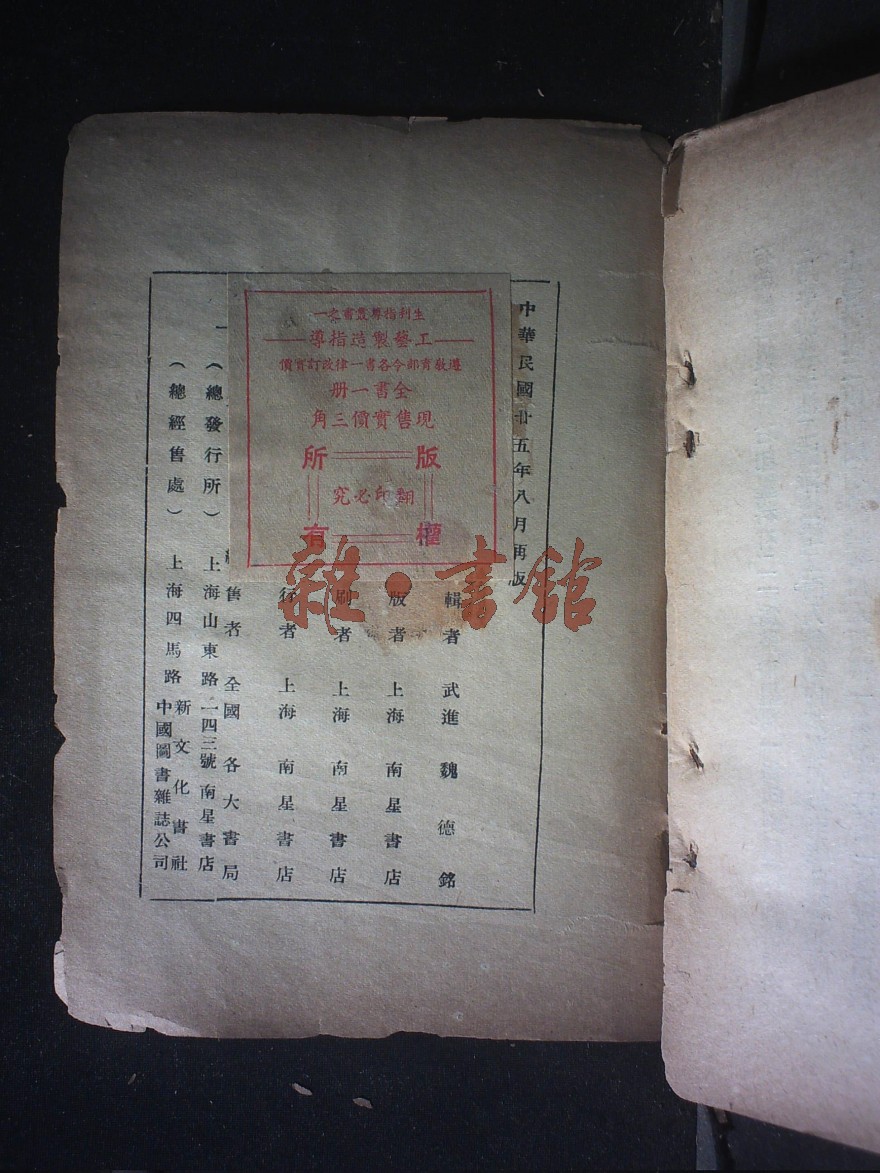 中華民國廿五年八月再版
生利指導叢書之一
工藝製造指導
遵敎育部令各書一律改訂實價
全書一册
現售實價三角
版權所有
翻印必究
輯者 武進 魏德銘
版者 上海 南星書店
刷者 上海 南星書店
行者 上海 南星書店
售者 全國各大書局
（總發行所） 上海山東路一四三號南星書店
（總經售處） 上海四馬路 新文化書社
中國圖書雜誌公司
雜·書館